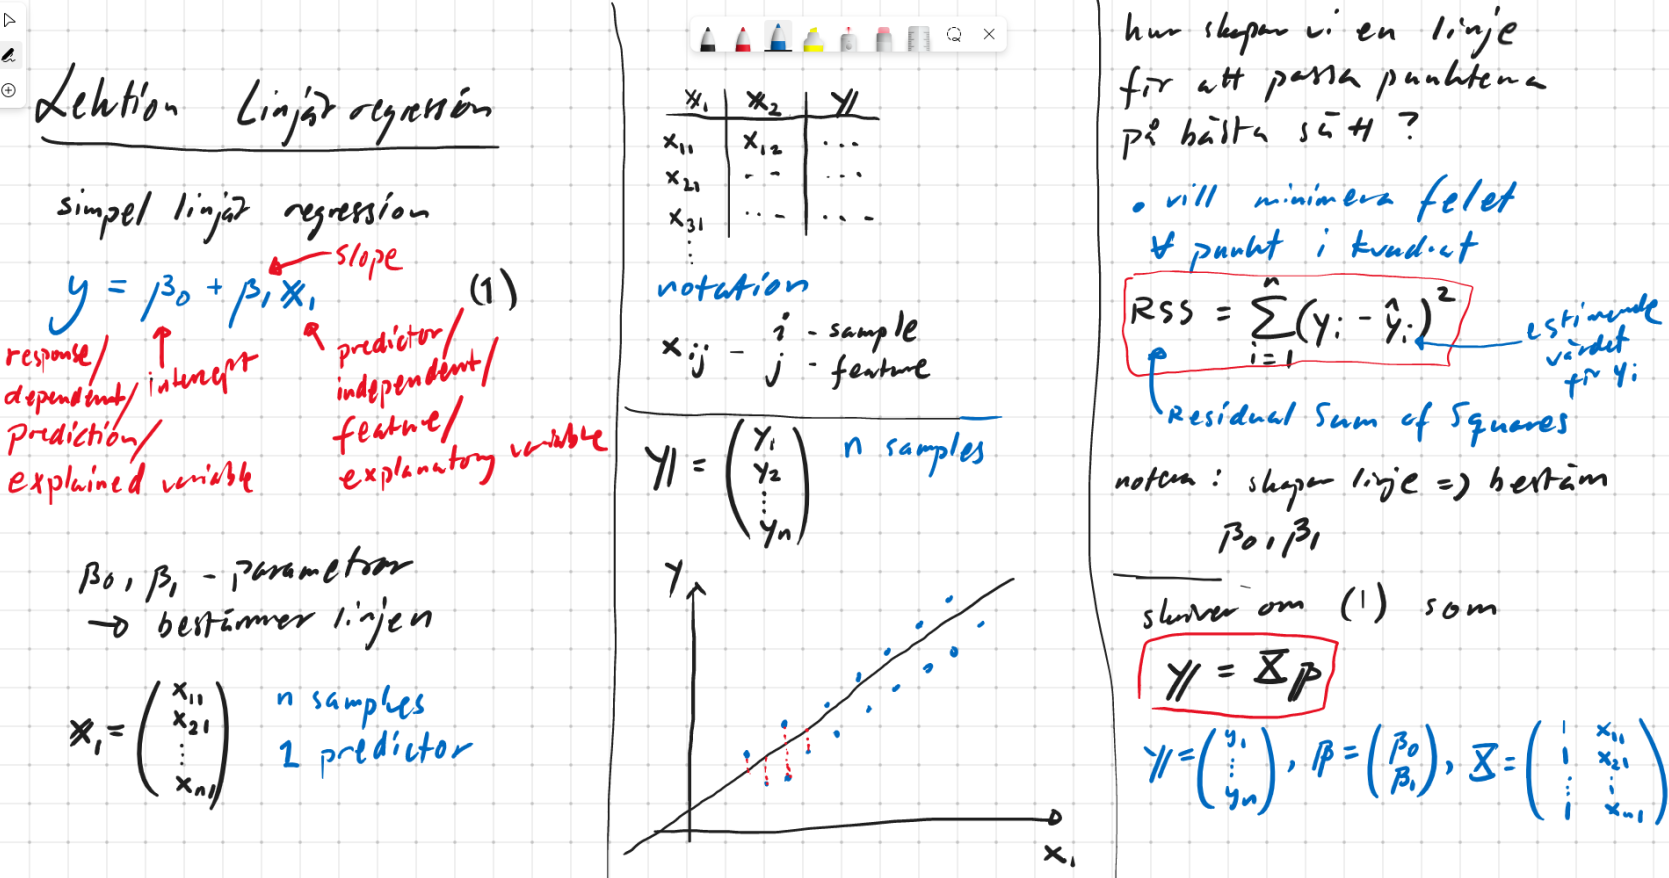 Lektion Linjär regression
simpel linjär regression
y = β₀ + β₁ 𝕩₁ (1)
slope
response/
dependent/
prediction/
explained variable
intercept
predictor/
independent/
feature/
explanatory variable
β₀, β₁ - parametrar
→ bestämmer linjen
𝕩₁ = (x₁₁ x₂₁ ⋮ xₙ₁)
n samples
1 predictor
𝕩₁ 𝕩₂ 𝕪
x₁₁ x₁₂ ...
x₂₁ -- ...
x₃₁ ... ...
⋮
notation
xᵢⱼ - i - sample
j - feature
𝕪 = (y₁ y₂ ⋮ yₙ)
n samples
y
x₁
hur skapar vi en linje
för att passa punkterna
på bästa sätt?
• vill minimera felet
∀ punkt i kvadrat
RSS = ∑ᵢ₌₁ⁿ (yᵢ - ŷᵢ)²
estimerade
värdet
för yᵢ
Residual Sum of Squares
notera: skapar linje => bestäm
β₀, β₁
skriver om (1) som
𝕪 = 𝕏β
𝕪 = (y₁ ⋮ yₙ), β = (β₀ β₁), 𝕏 = (1 x₁₁ 1 x₂₁ ⋮ ⋮ 1 xₙ₁)